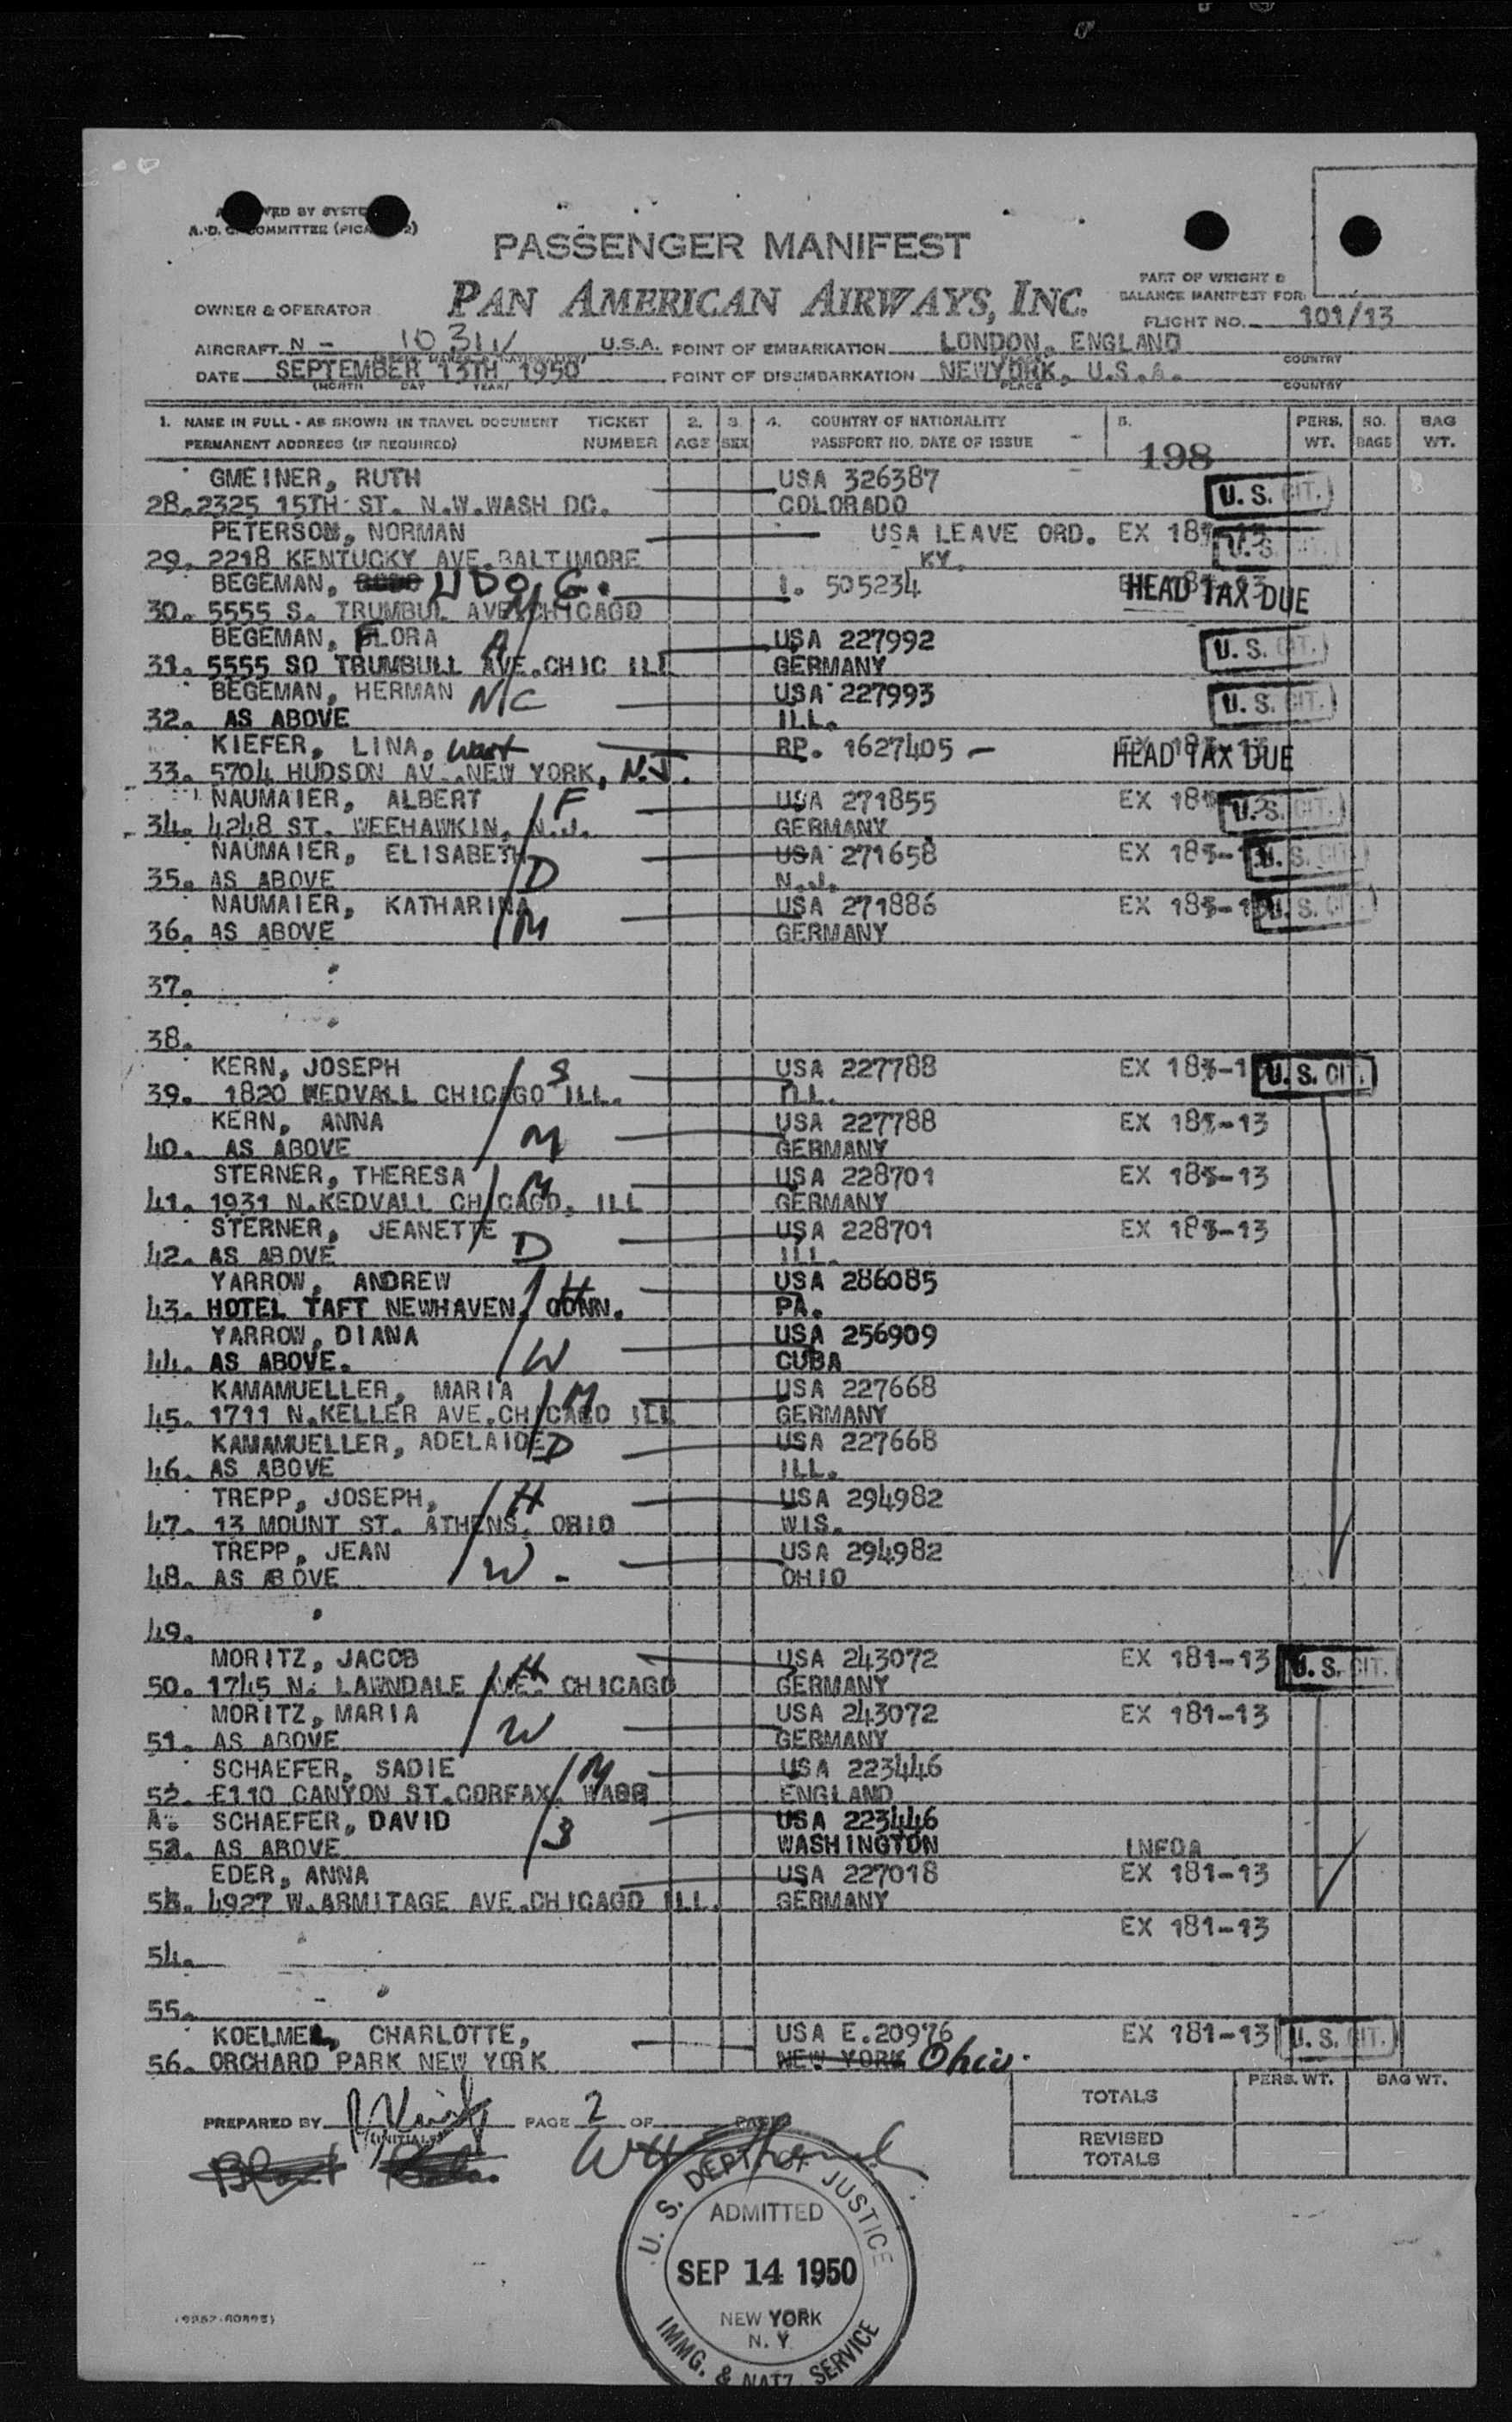 PASSENGER MANIFEST
PAN AMERICAN AIRWAYS, INC.
PART OF WEIGHT &
BALANCE MANIFEST FOR:
OWNER & OPERATOR
FLIGHT NO. 101/13
AIRCRAFT N - 1031V U.S.A. POINT OF EMBARKATION LONDON, ENGLAND
COUNTRY
DATE SEPTEMBER 13TH 1950 POINT OF DISEMBARKATION NEWYORK, U.S.A.
(MONTH DAY YEAR) PLACE COUNTRY
1. NAME IN FULL - AS SHOWN IN TRAVEL DOCUMENT TICKET 2. 3. 4. COUNTRY OF NATIONALITY 5. PERS. NO. BAG
PERMANENT ADDRESS (IF REQUIRED) NUMBER AGE SEX PASSPORT NO. DATE OF ISSUE WT. BAGS WT.
198
GMEINER, RUTH USA 326387
28. 2325 15TH ST. N.W.WASH DC. COLORADO U.S. CIT.
PETERSON, NORMAN USA LEAVE ORD. EX
29. 2218 KENTUCKY AVE.BALTIMORE KY. U.S.
BEGEMAN, UDO, G. I. 505234 HEAD TAX DUE
30. 5555 S. TRUMBUL AVE.CHICAGO
BEGEMAN, FLORA USA 227992
31. 5555 SO TRUMBULL AVE.CHIC ILL GERMANY U.S. CIT.
BEGEMAN, HERMAN N/C USA 227993
32. AS ABOVE ILL. U.S. CIT.
KIEFER, LINA, RP. 1627405 - HEAD TAX DUE
33. 5704 HUDSON AV..NEW YORK, N.J.
NAUMAIER, ALBERT F USA 271855 EX
34. 4248 ST. WEEHAWKIN, N.J. GERMANY U.S. CIT.
NAUMAIER, ELISABETH USA 271658 EX
35. AS ABOVE D N.J. U.S. CIT.
NAUMAIER, KATHARINA USA 271886 EX
36. AS ABOVE M GERMANY U.S. CIT.
37.
38.
KERN, JOSEPH S USA 227788 EX
39. 1820 KEDVALL CHICAGO ILL. ILL. U.S. CIT.
KERN, ANNA USA 227788 EX 181-13
40. AS ABOVE M GERMANY
STERNER, THERESA M USA 228701 EX 181-13
41. 1931 N.KEDVALL CHICAGO, ILL GERMANY
STERNER, JEANETTE USA 228701 EX 181-13
42. AS ABOVE D ILL.
YARROW, ANDREW H USA 286085
43. HOTEL TAFT NEWHAVEN, CONN. PA.
YARROW, DIANA USA 256909
44. AS ABOVE. W CUBA
KAMAMUELLER, MARIA M USA 227668
45. 1711 N.KELLER AVE.CHICAGO ILL GERMANY
KAMAMUELLER, ADELAIDE D USA 227668
46. AS ABOVE ILL.
TREPP, JOSEPH, H USA 294982
47. 13 MOUNT ST. ATHENS, OHIO WIS.
TREPP, JEAN USA 294982
48. AS ABOVE W - OHIO
49.
MORITZ, JACOB H USA 243072 EX 181-13 U.S. CIT.
50. 1745 N. LAWNDALE AVE. CHICAGO GERMANY
MORITZ, MARIA USA 243072 EX 181-13
51. AS ABOVE W GERMANY
SCHAEFER, SADIE M USA 223446
52. E110 CANYON ST.CORFAX, WASH ENGLAND
A. SCHAEFER, DAVID USA 223446
52. AS ABOVE S WASHINGTON
EDER, ANNA USA 227018 EX 181-13
53. 4927 W.ARMITAGE AVE.CHICAGO ILL. GERMANY
EX 181-13
54.
55.
KOELMEL, CHARLOTTE, USA E.20976 EX 181-13 U.S. CIT.
56. ORCHARD PARK NEW YORK NEW YORK Ohio.
PERS. WT. BAG WT.
TOTALS
PREPARED BY PAGE 2 OF PAGES
(INITIALS)
REVISED
TOTALS
U.S. DEPT. OF JUSTICE
ADMITTED
SEP 14 1950
NEW YORK
N. Y.
IMMG. & NATZ. SERVICE